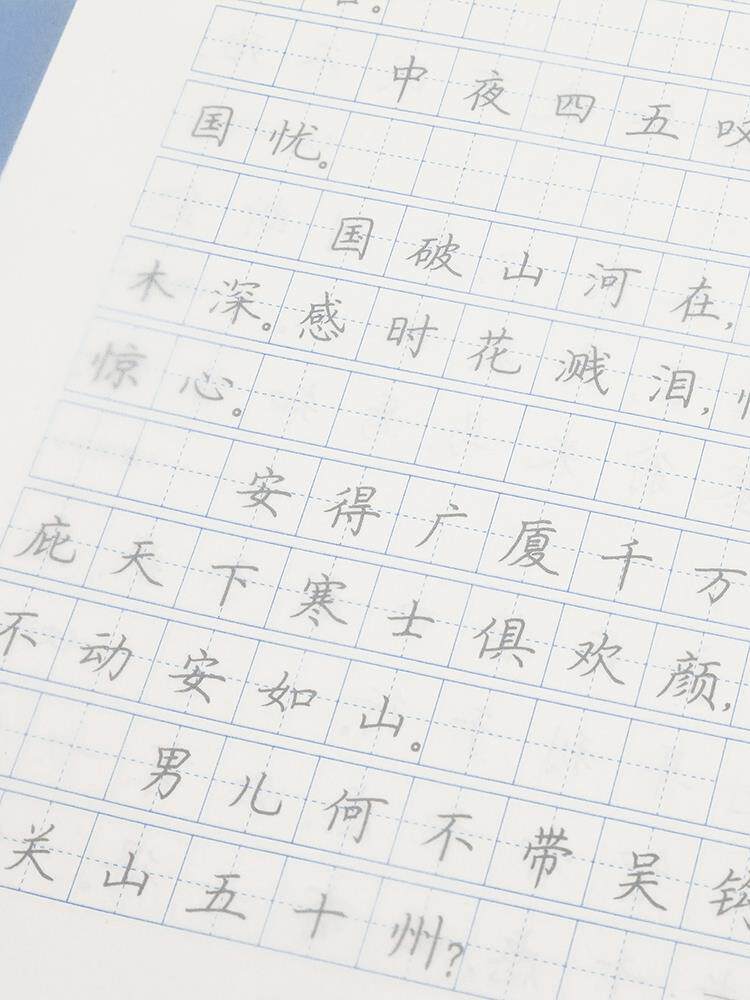 中夜四五叹
国忧。
国破山河在,
木深。感时花溅泪,
惊心。
安得广厦千万
庇天下寒士俱欢颜,
不动安如山。
男儿何不带吴钩
关山五十州?